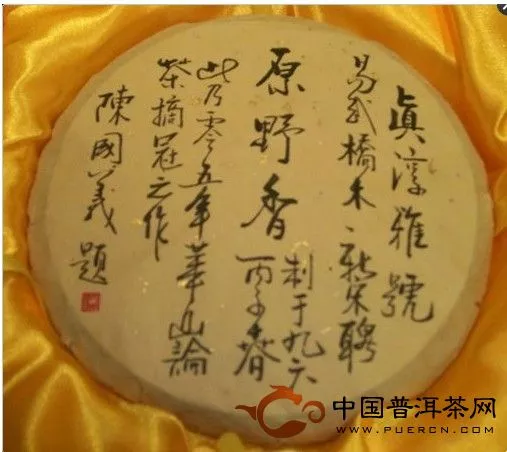 眞淳雅號
易武橋木、宋聘
原野香
制于九六
丙子春
此乃零五年華山論
茶摘冠之作
陳國義 題
中国普洱茶网
WWW.PUERCN.COM